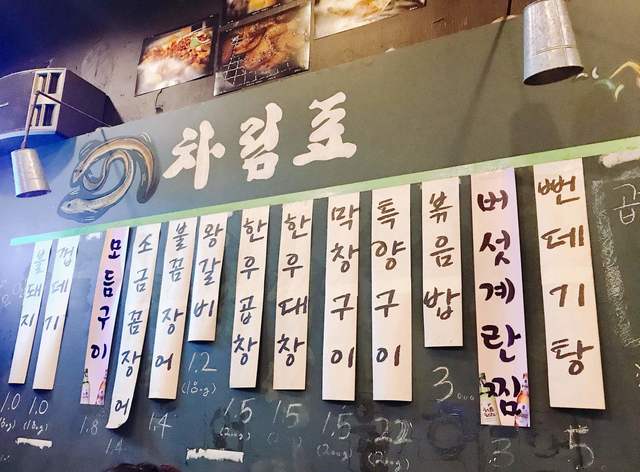 차림표
불돼지
껍데기
모듬구이
소금꼼장어
불꼼장어
왕갈비
한우곱창
한우대창
막창구이
특양구이
볶음밥
버섯계란찜
뻔데기탕
곱
1.0
1.0
1.8
1.4
1.4
1.2
(180g)
1.5
(200g)
1.5
1.5
(200g)
2.2
(200g)
3
3
5